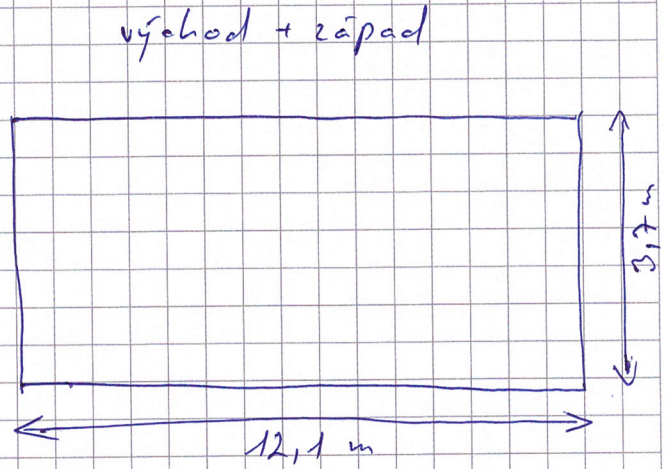 východ + západ
3,7 m
12,1 m